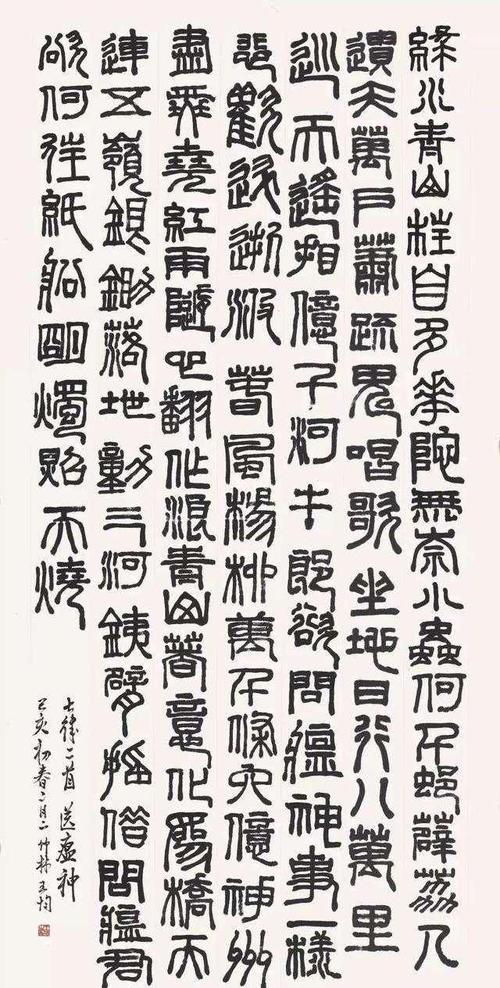 綠水青山枉自多華陀無奈小蟲何千邨薜荔人
遺矢萬戶蕭疏鬼唱歌坐地日行八萬里
巡天遙相億千河牛郎欲問瘟神事一樣
悲歡逐逝波春風楊柳萬千條六億神州
盡舜堯紅雨隨心翻作浪青山著意化爲橋天
連五嶺銀鋤落地動三河銕臂搖借問瘟君
欲何往紙船明燭照天燒
七律二首 送瘟神
己亥初春二月二 仲林王均